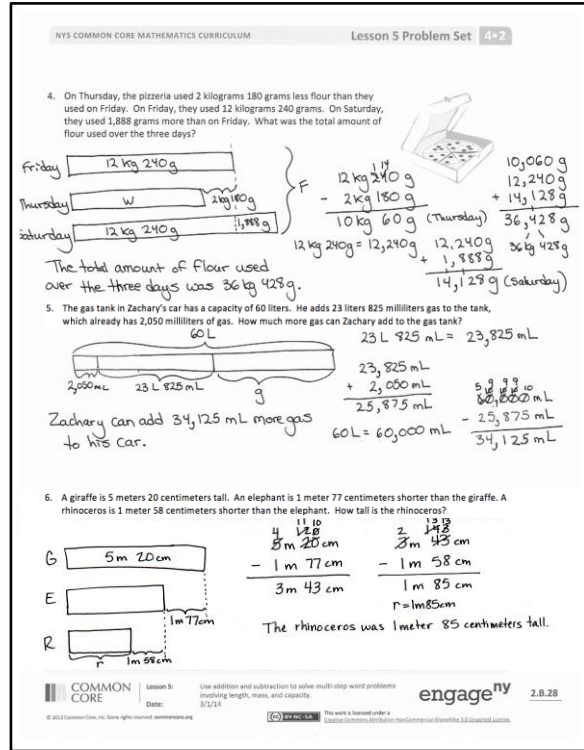 NYS COMMON CORE MATHEMATICS CURRICULUM Lesson 5 Problem Set 4•2
4. On Thursday, the pizzeria used 2 kilograms 180 grams less flour than they
used on Friday. On Friday, they used 12 kilograms 240 grams. On Saturday,
they used 1,888 grams more than on Friday. What was the total amount of
flour used over the three days?
Friday 12 kg 240 g
Thursday W 2kg 180g
Saturday 12 kg 240g 1,888g
F
12 kg 240 g
- 2 kg 180 g
10 kg 60 g (Thursday)
12 kg 240g = 12,240g
12,240g
+ 1,888g
14,128 g (Saturday)
10,060 g
12,240 g
+ 14,128 g
36,428 g
36 kg 428 g
The total amount of flour used
over the three days was 36 kg 428g.
5. The gas tank in Zachary's car has a capacity of 60 liters. He adds 23 liters 825 milliliters of gas to the tank,
which already has 2,050 milliliters of gas. How much more gas can Zachary add to the gas tank?
60 L
2,050 mL 23 L 825 mL g
23 L 825 mL = 23,825 mL
23,825 mL
+ 2,050 mL
25,875 mL
60L = 60,000 mL
5 9 9 9 10
60,000 mL
- 25,875 mL
34,125 mL
Zachary can add 34,125 mL more gas
to his car.
6. A giraffe is 5 meters 20 centimeters tall. An elephant is 1 meter 77 centimeters shorter than the giraffe. A
rhinoceros is 1 meter 58 centimeters shorter than the elephant. How tall is the rhinoceros?
G 5 m 20 cm
E 1m 77cm
R r 1m 58cm
11 10
4 120
5m 20 cm
- 1m 77 cm
3m 43 cm
13 13
2 143
3m 43 cm
- 1m 58 cm
1m 85 cm
r=1m85cm
The rhinoceros was 1 meter 85 centimeters tall.
COMMON CORE
Lesson 5: Use addition and subtraction to solve multi-step word problems
involving length, mass, and capacity.
Date: 3/1/14
engage ny 2.B.28
© 2013 Common Core, Inc. Some rights reserved. commoncore.org
CC BY-NC-SA This work is licensed under a
Creative Commons Attribution-NonCommercial-ShareAlike 3.0 Unported License.